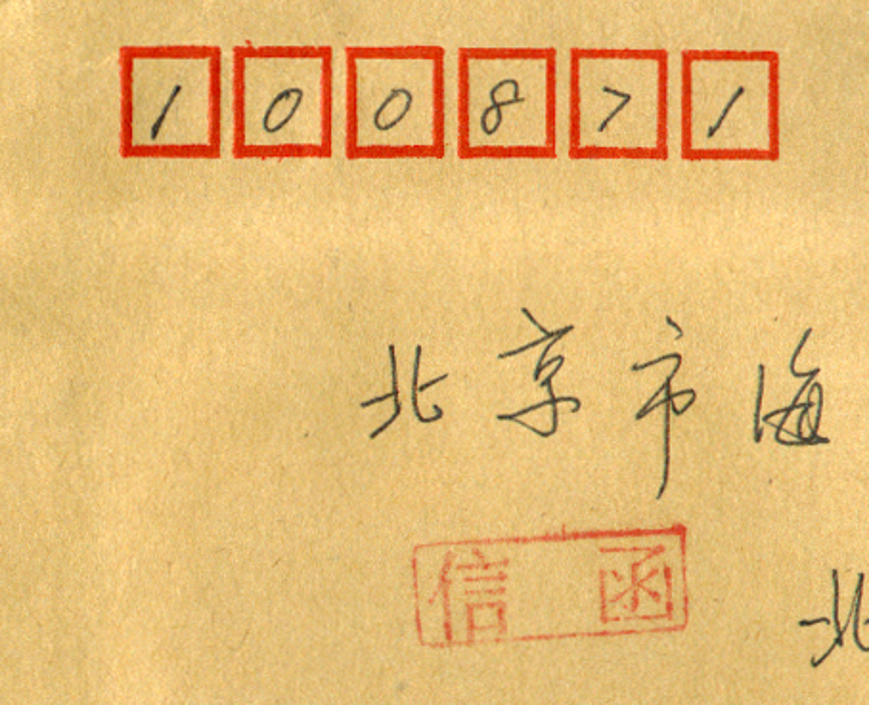 100871
北京市海
信函
北